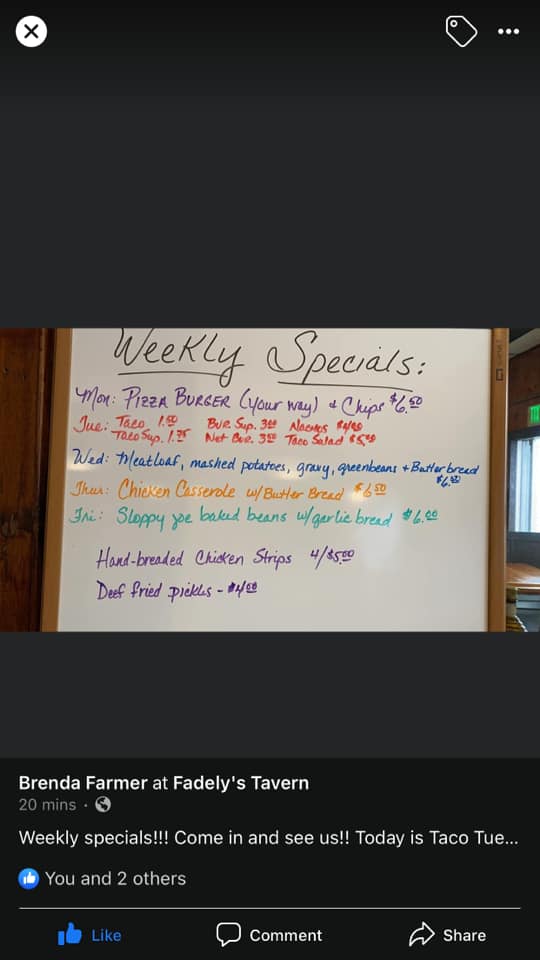 Weekly Specials:
Mon: Pizza Burger (your way) & Chips $6.50
Tue: Taco 1.50 Bur. Sup. 3.00 Nachos $4.00
Taco Sup. 1.75 Taco Salad $5.00
Wed: Meatloaf, mashed potatoes, gravy, greenbeans + Butter bread
Thur: Chicken Casserole w/ Butter Bread $6.50
Fri: Sloppy joe baked beans w/ garlic bread $6.00
Hand-breaded Chicken Strips 4/$5.00
Deef fried pickles - $4.00
Brenda Farmer at Fadely's Tavern
20 mins ·
Weekly specials!!! Come in and see us!! Today is Taco Tue...
You and 2 others
Like Comment Share